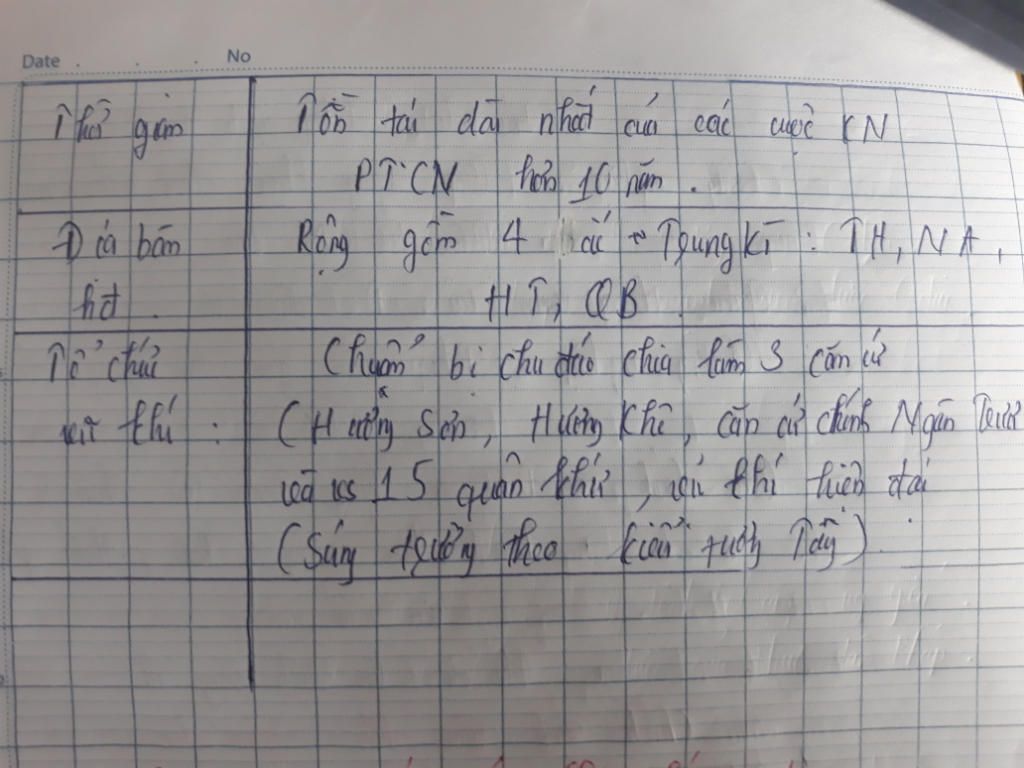 Date . . . No
Thời gian
Tồn tại dài nhất của các cuộc KN
PTCN hơn 10 năm .
Địa bàn
Rộng gồm 4 Trung Kì : TH, NA,
hđ .
HT, QB
Tổ chức
Chuẩn bị chu đáo chia làm 3 căn cứ
vũ khí :
(Hương Sơn, Hương Khê, căn cứ chính Ngàn Trươi
và 15 quân thứ, vũ khí hiện đại
(Súng trường theo kiểu Tây).